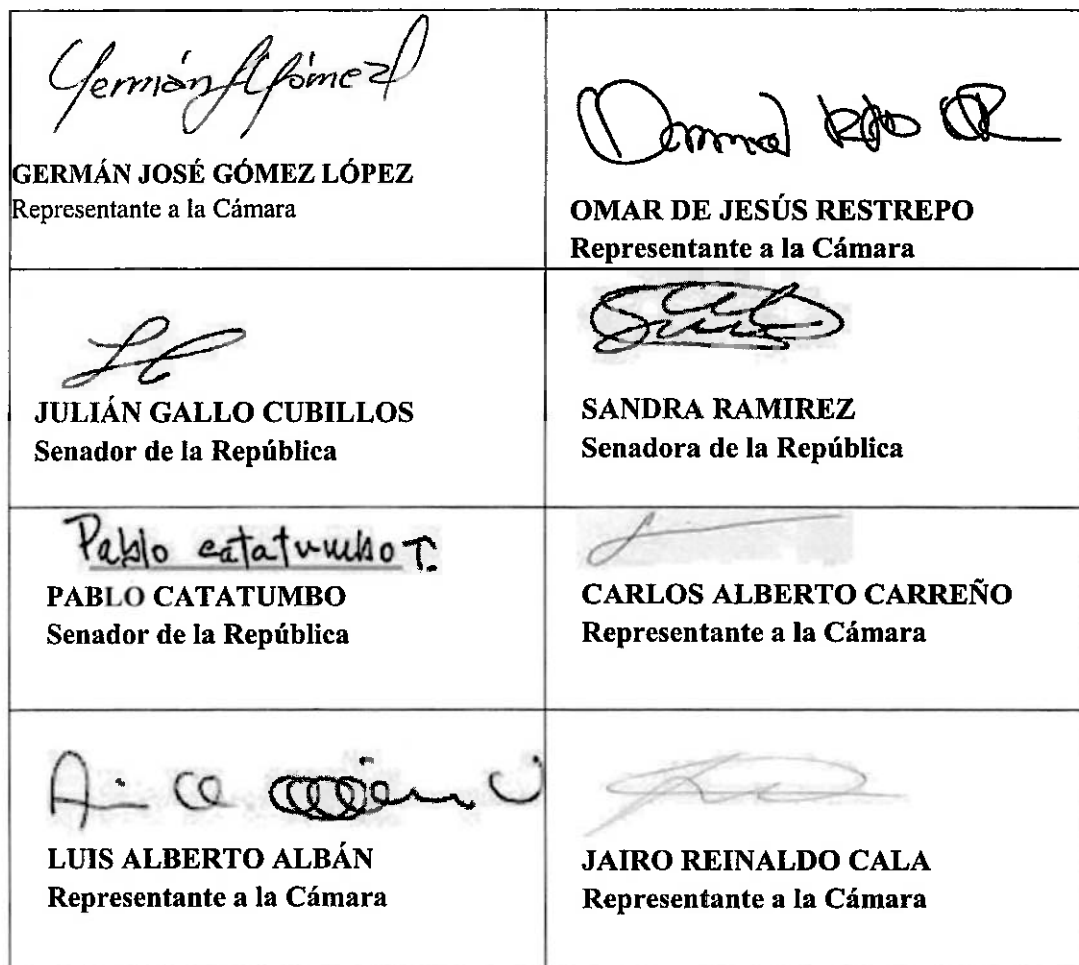 GERMÁN JOSÉ GÓMEZ LÓPEZ
Representante a la Cámara
OMAR DE JESÚS RESTREPO
Representante a la Cámara
JULIÁN GALLO CUBILLOS
Senador de la República
SANDRA RAMIREZ
Senadora de la República
Pablo catatumbo T.
PABLO CATATUMBO
Senador de la República
CARLOS ALBERTO CARREÑO
Representante a la Cámara
LUIS ALBERTO ALBÁN
Representante a la Cámara
JAIRO REINALDO CALA
Representante a la Cámara